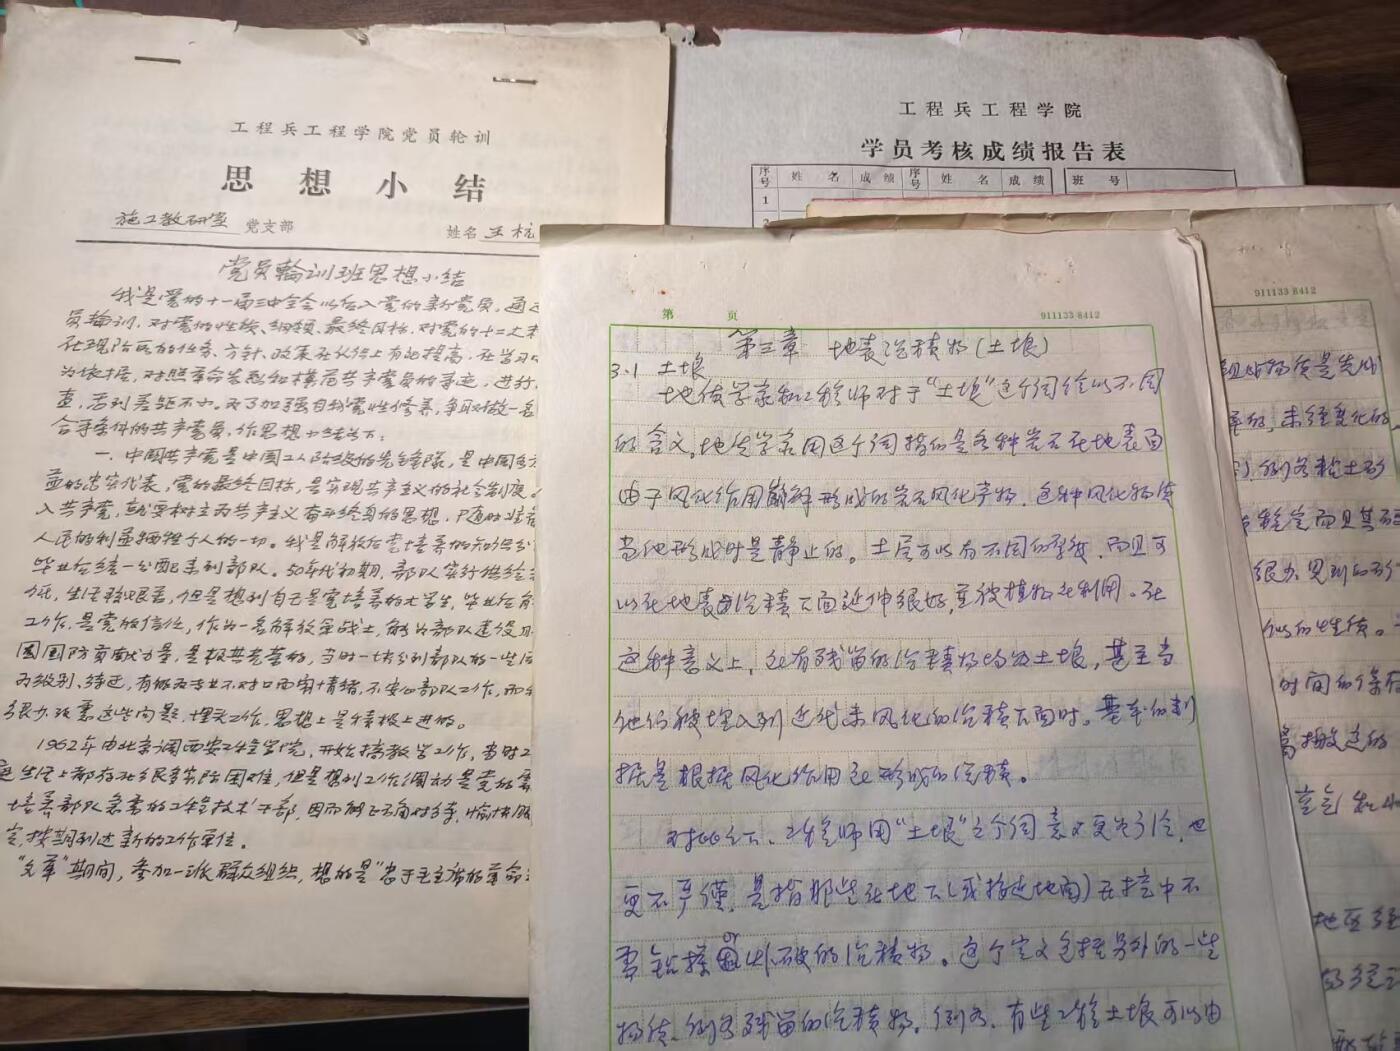 工程兵工程学院党员轮训
思想小结
施工教研室 党支部 姓名 王
党员輪训班思想小结
我是党的十一届三中全会以后入党的新党员,通过
员輪训,对党的性质、纲领、最终目标,对党的十二大
在现阶段的任务、方针、政策在认识上有所提高,在学习
为依据,对照革命先烈和模范共产党员的事迹,进行
查,否则差距不小。为了加强自我党性修养,争取做一名
合乎条件的共产党员,作思想小结如下:
一、中国共产党是中国工人阶级的先锋队,是中国各
益的忠实代表,党的最终目标,是实现共产主义的社会制度。
入共产党,就要树立为共产主义奋斗终身的思想,
人民的利益牺牲个人的一切。我是解放后党培养的知识分
毕业后统一分配来到部队。50年代初期,部队实行供给
低,生活较艰苦,但是想到自己是党培养的大学生,毕业后
工作,是党的信任,作为一名解放军战士,能为部队建设
国国防贡献力量,是极其光荣的,当时一块分到部队的一些同
为级别、待遇,有的为专业不对口而闹情绪,不安心部队工作,而
很少考虑这些问题,埋头工作,思想上是积极上进的。
1962年由北京调西安工程学院,开始搞教学工作,当时
生活上都存在很多实际困难,但是想到工作调动是党的需
培养部队急需的工程技术干部,因而能正确对待,愉快服
定,按期到达新的工作单位。
“文革”期间,参加一派群众组织,想的是“忠于毛主席的革命
工程兵工程学院
学员考核成绩报告表
序号 姓名 成绩 序号 姓名 成绩 班号
1
2
第 页 911133 8412
第三章 地表沉积物(土壤)
3.1 土壤
地质学家和工程师对于“土壤”这个词给以不同
的含义。地质学家用这个词指的是各种岩石在地表面
由于风化作用崩解形成的岩石风化产物。这种风化物质
当他形成时是静止的。土层可以有不同的厚度,而且可
以在地表沉积下面延伸很好,至被植物所利用。在
这种意义上,所有残留的沉积物均为土壤,甚至当
他们被埋入到近代未风化的沉积下面时。基本的判
据是根据风化作用所形成的沉积。
对此之下,工程师用“土壤”这个词意义更为广泛,也
更不严谨,是指那些在地下(或接近地面)在挖中不
需钻探或爆破的沉积物。这个定义包括另外的一些
物质,例如残留的沉积物。例如,有些工程土壤可以由
911133 8412
物质是先成
的,未经变化的
例如粘土矿
稳定而且其
很少见到的
似的性质。
时间的保存
离搬运的
空气和水
地区经